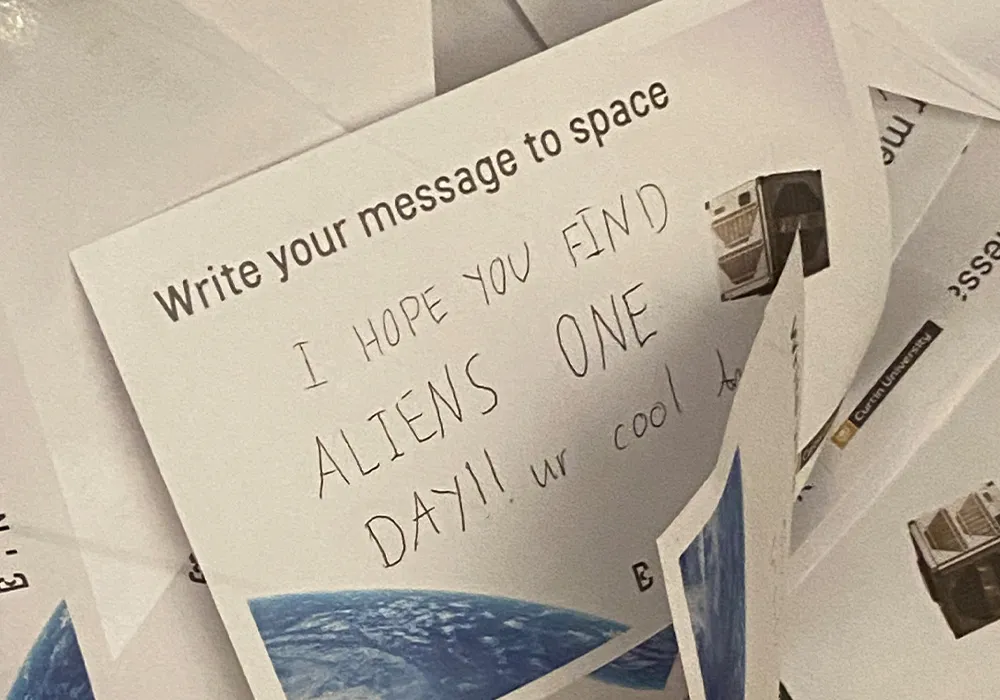 Write your message to space
I HOPE YOU FIND
ALIENS ONE
DAY!! ur cool
B
Curtin University